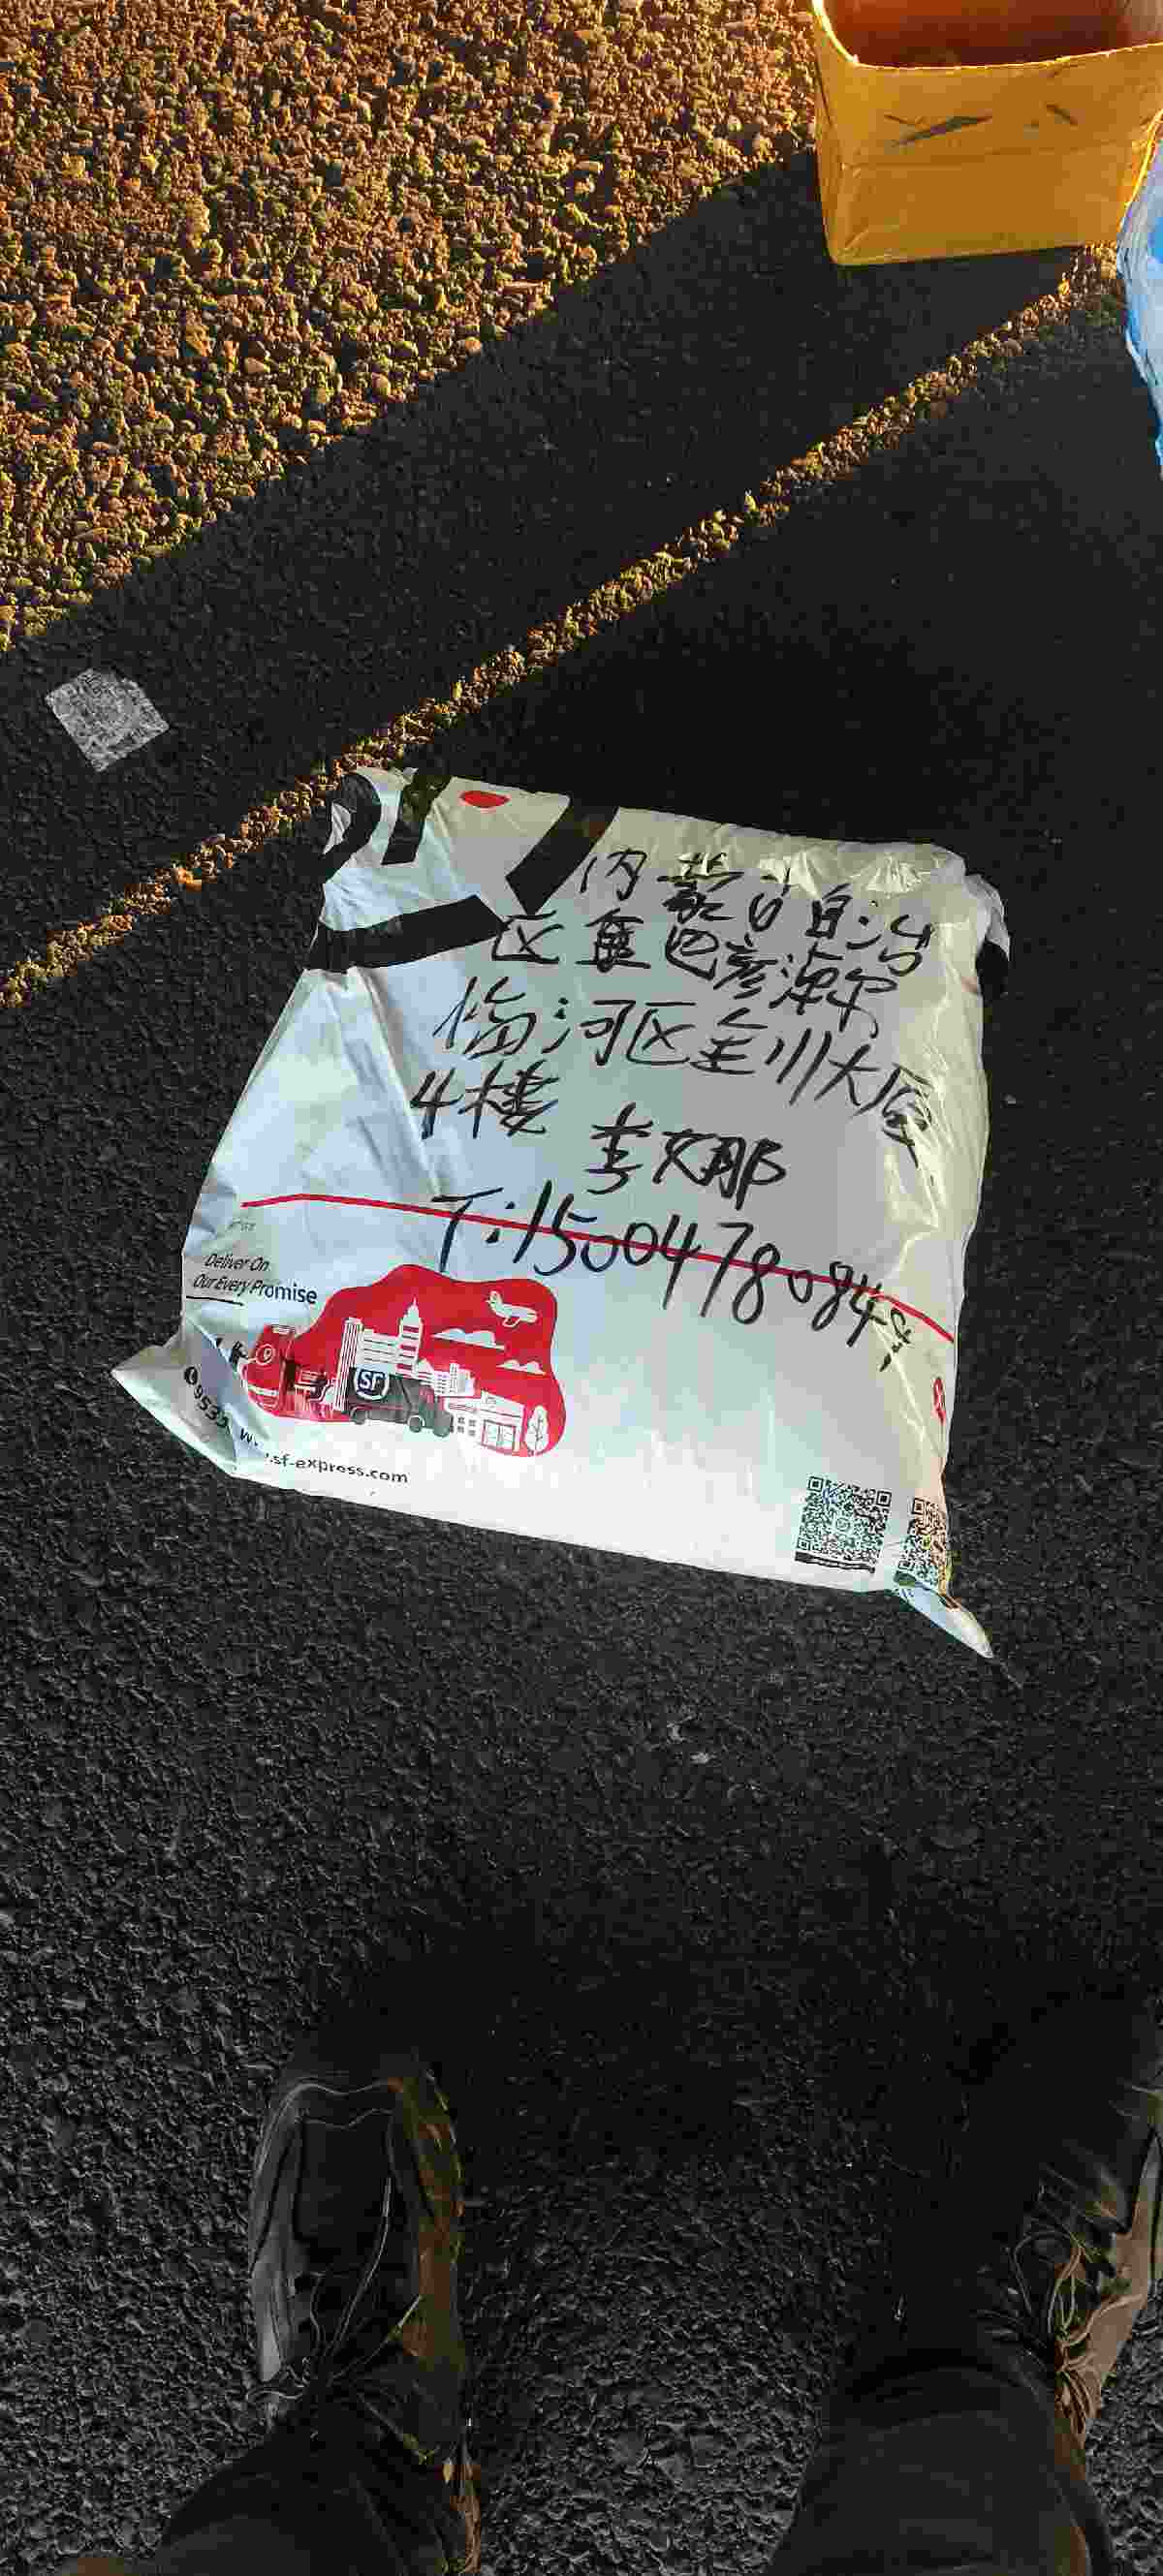 内蒙古自治
区巴彦淖尔
临河区金川大厦
4楼 李文那
T:15004780848
Deliver On
Our Every Promise
SF
.sf-express.com